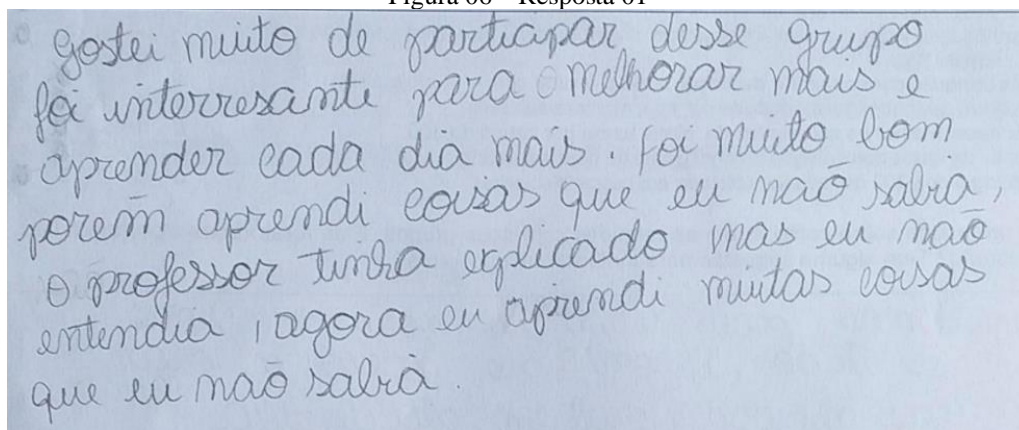 Figura 06 – Resposta 01
Gostei muito de participar desse grupo
foi interresante para melhorar mais e
aprender cada dia mais. foi muito bom
porem aprendi coisas que eu não sabia,
o professor tinha explicado mas eu não
entendia, agora eu aprendi muitas coisas
que eu não sabia.